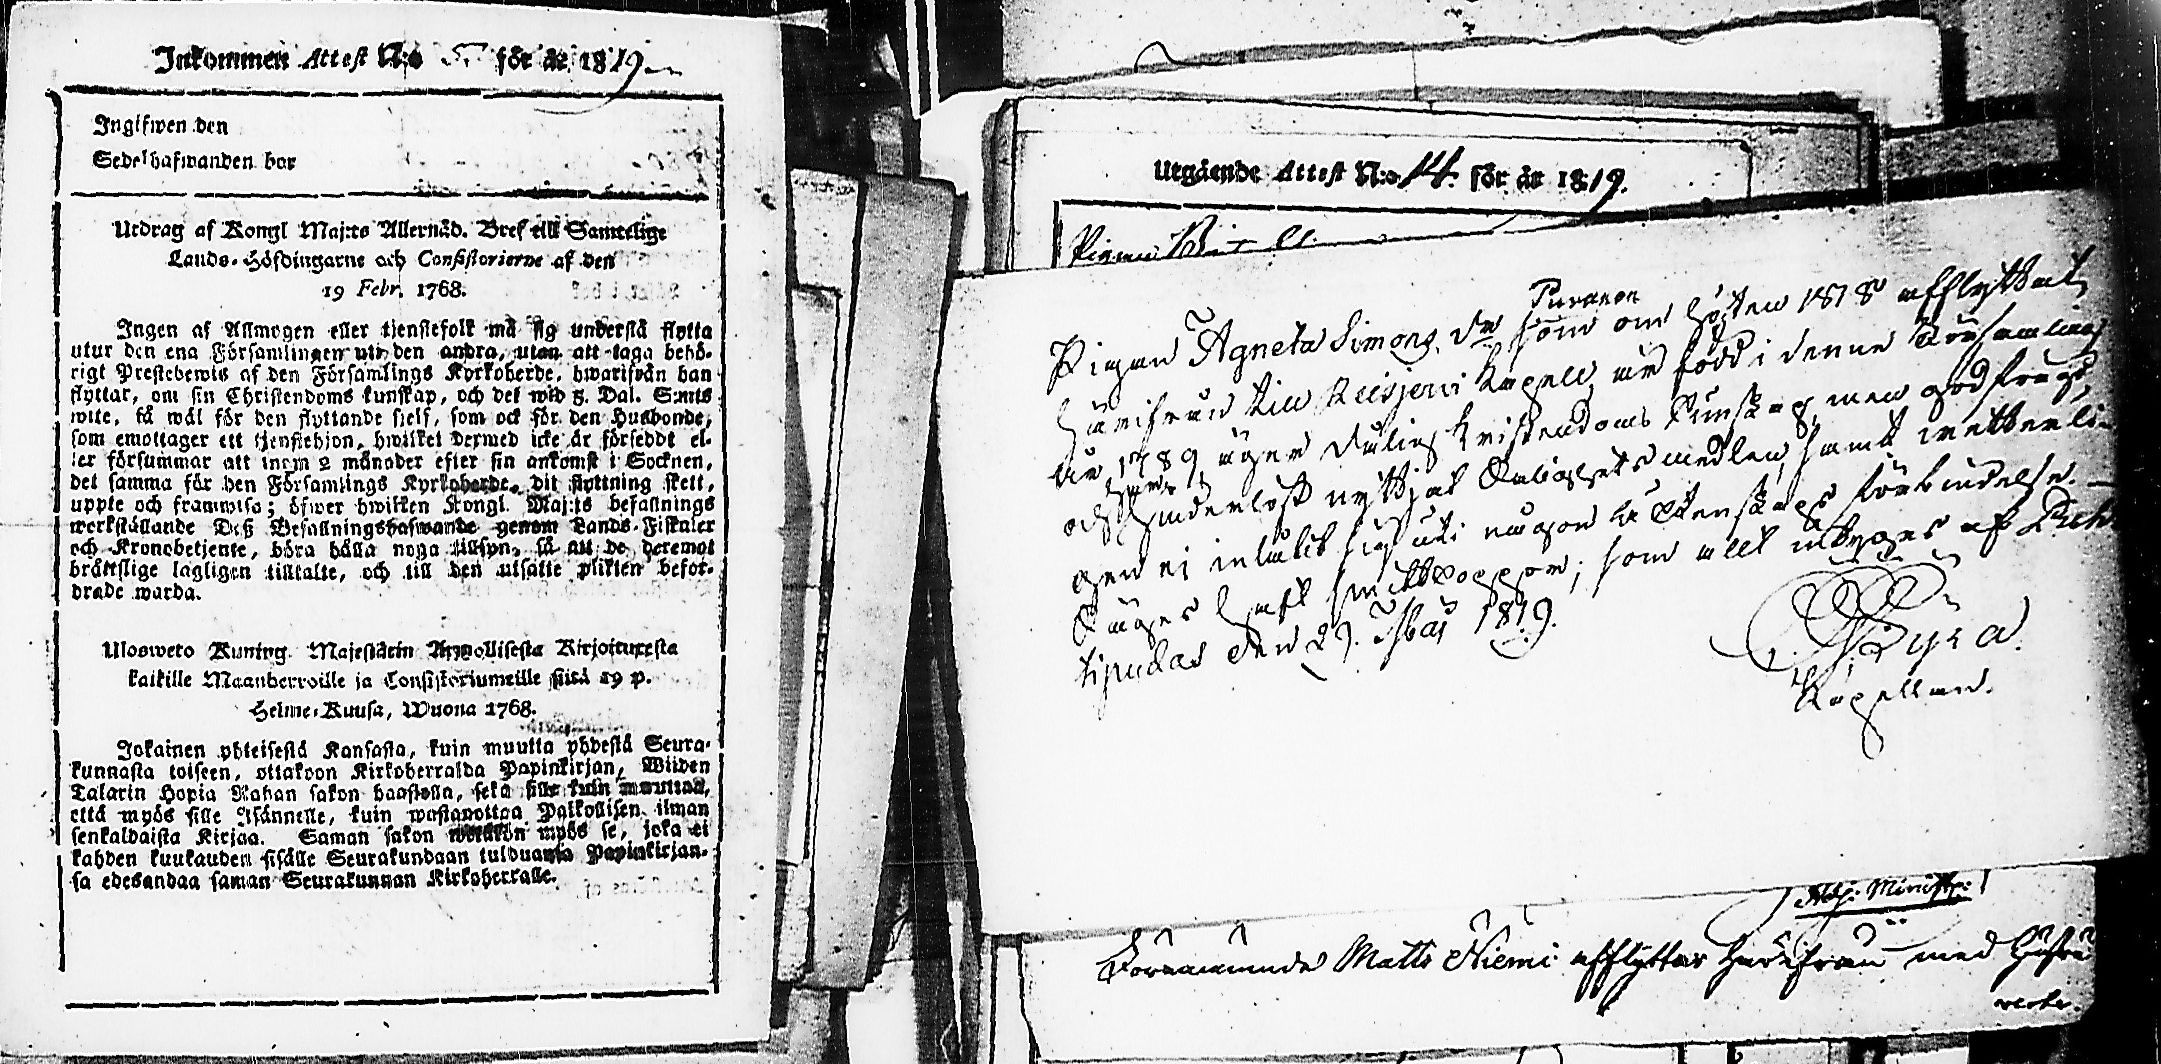 Inkommen Attest N:o 5 för år 1819
Ingifwen den
Sedelhafwanden bor
Utdrag af Kongl Maj:ts Allernåd. Bref till Samtelige
Lands-Höfdingarne och Consistorierne af den
19 Febr. 1768.
Ingen af Allmogen eller tjenstefolk må sig understå flytta
utur den ena Församlingen uti den andra, utan att taga behö-
rigt Prestebewis af den Församlings Kyrkoherde, hwarifrån han
flyttar, om sin Christendoms kunskap, och det wid 5. Dal. S:mts
wite, så wäl för den flyttande sielf, som ock för den Husbonde,
som emottager ett tjenstehjon, hwilket dermed icke är försedt el-
ler försummar att inom 2 månader efter sin ankomst i Socknen,
det samma för den Församlings Kyrkoherde, dit flyttning skett,
uppte och framwisa; öfwer hwilken Kongl. Maj:ts befallnings
werkställande Deß Befallningshafwande genom Lands-Fiskaler
och Kronobetjente, böra hålla noga tillsyn, så att de deremot
bråttslige lagligen tilltalte, och till den utsatte plikten befor-
drade warda.
Ulosweto Kuning. Majestätin Armollisesta Kirjoituxesta
kaikille Maanherroille ja Consistoriumeille siitä 19 p.
Helme-Kuusa, Wuona 1768.
Jokainen yhteisestä Kansasta, kuin muutta yhdestä Seura-
kunnasta toiseen, ottakoon Kirkoherralda Papinkirjan, Wiiden
Talarin Hopia Rahan sakon haastolla, sekä sille kuin muuttaa,
että myös sille Isännelle, kuin wastanottaa Palkollisen ilman
senkaldaista Kirjaa. Saman sakon wetäkön myös se, joka ei
kahden kuukauden sisälle Seurakundaan tulduansa Papinkirjan-
sa edesandaa saman Seurakunnan Kirkoherralle.
Utgående Attest N:o 14. för år 1819.
Pigan
Puranen
Pigan Agneta Simons dr som om hösten 1818 afflyttat
härifrån till Reisjervi Kapell, är född i denne Församling
år 1789, äger dålig Kristendoms Kunskap, men gudfrugt,
och hinderlöst nyttjat Salighetsmedlen, samt wetterli-
gen ej inlåtit sig uti någon Ächtenskaps förbindelse.
haft smittkoppor; som allt intygas af Pulk-
kila den 29. 1819.
Kapellan.
Adj. Minist:
Matts Niemi afflyttar härifrån med hustru
verte.